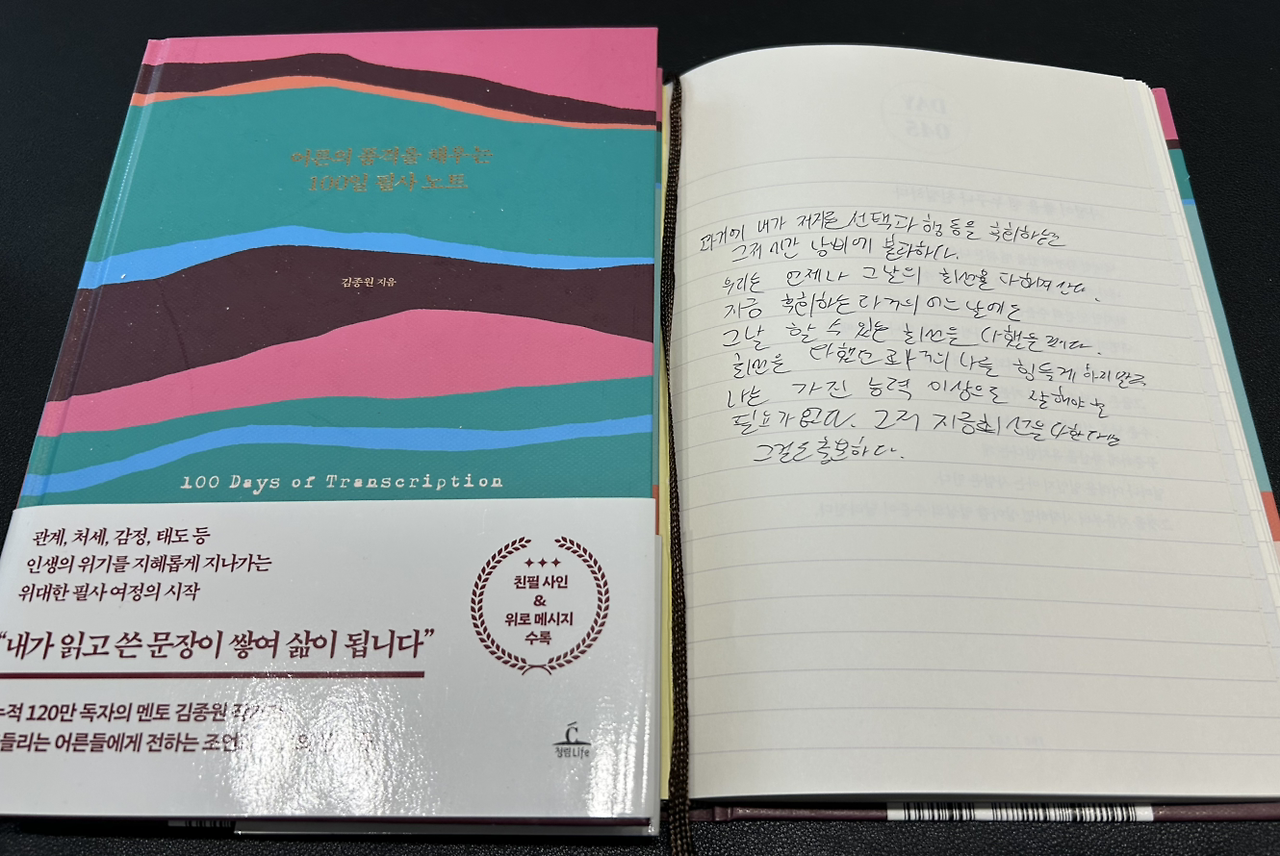 어른의 품격을 채우는
100일 필사 노트
김종원 지음
100 Days of Transcription
관계, 처세, 감정, 태도 등
인생의 위기를 지혜롭게 지나가는
위대한 필사 여정의 시작
“내가 읽고 쓴 문장이 쌓여 삶이 됩니다”
누적 120만 독자의 멘토 김종원
들리는 어른들에게 전하는
친필 사인
&
위로 메시지
수록
청림Life
DAY
045
과거에 내가 저지른 선택과 행동을 후회하는건
그저 시간 낭비에 불과하다.
우리는 언제나 그날의 최선을 다하며 산다.
지금 후회하는 과거의 어느 날에도
그날 할 수 있는 최선을 다했을 것이다.
최선을 다했던 과거의 나를 힘들게 하지말고
나는 가진 능력 이상으로 잘해야 할
필요가 없다. 그저 지금 최선을 다한다면
그걸로 충분하다.